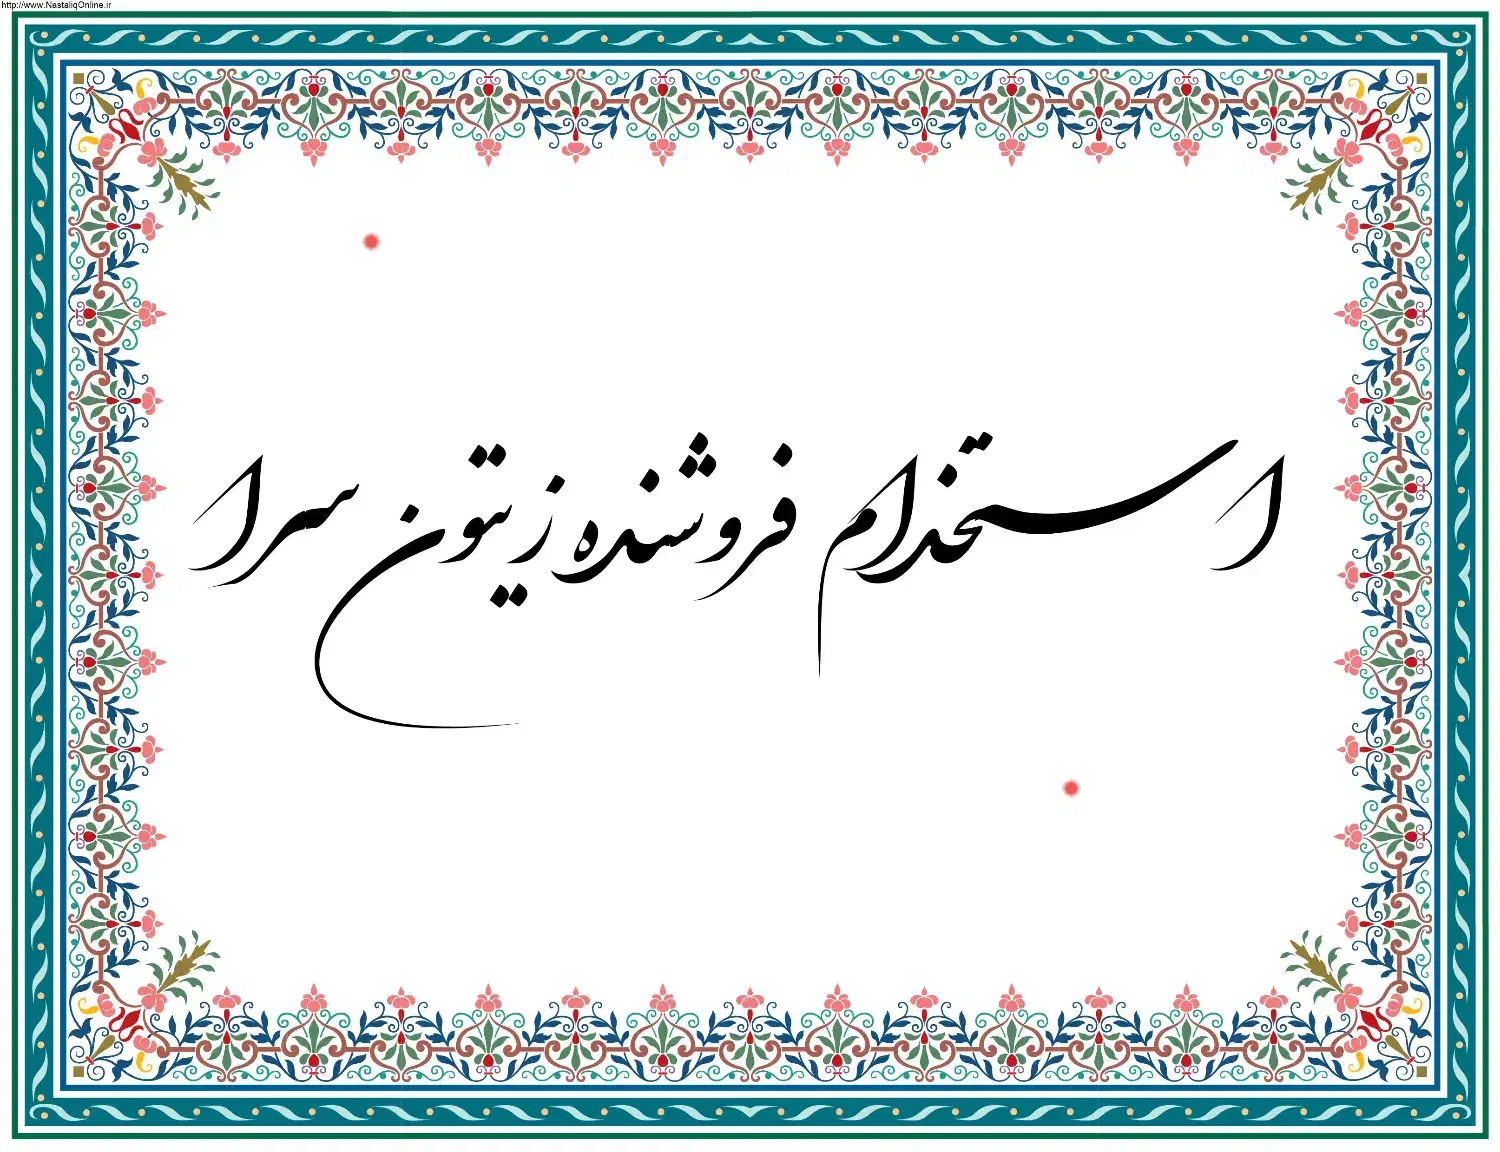 http://www.NastaliqOnline.ir
استخدام فروشنده زیتون سرا